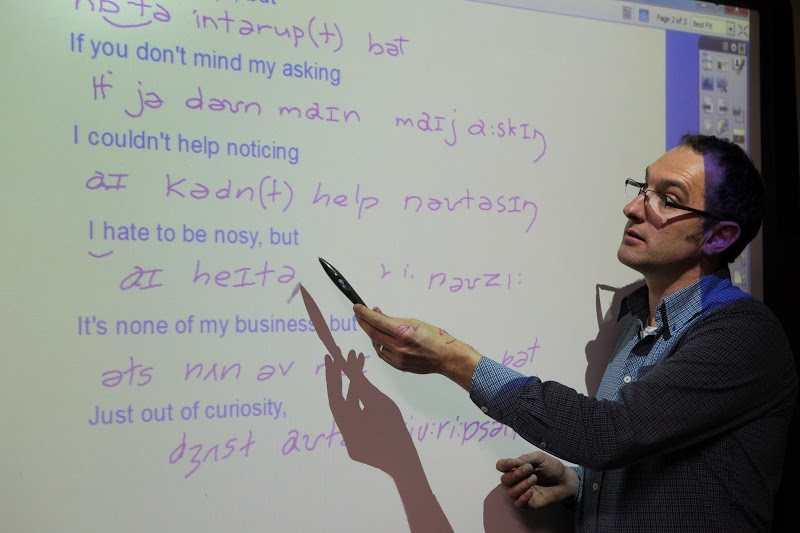 Page 2 of 3 Best Fit
intərup(t) bət
If you don't mind my asking
ɪf jə dəʊn maɪn maɪj a:skɪŋ
I couldn't help noticing
aɪ kədn(t) help nəʊtəsɪŋ
I hate to be nosy, but
aɪ heɪtə i: nəʊzi:
It's none of my business, but
əts nʌn əv bət
Just out of curiosity,
dʒʌst